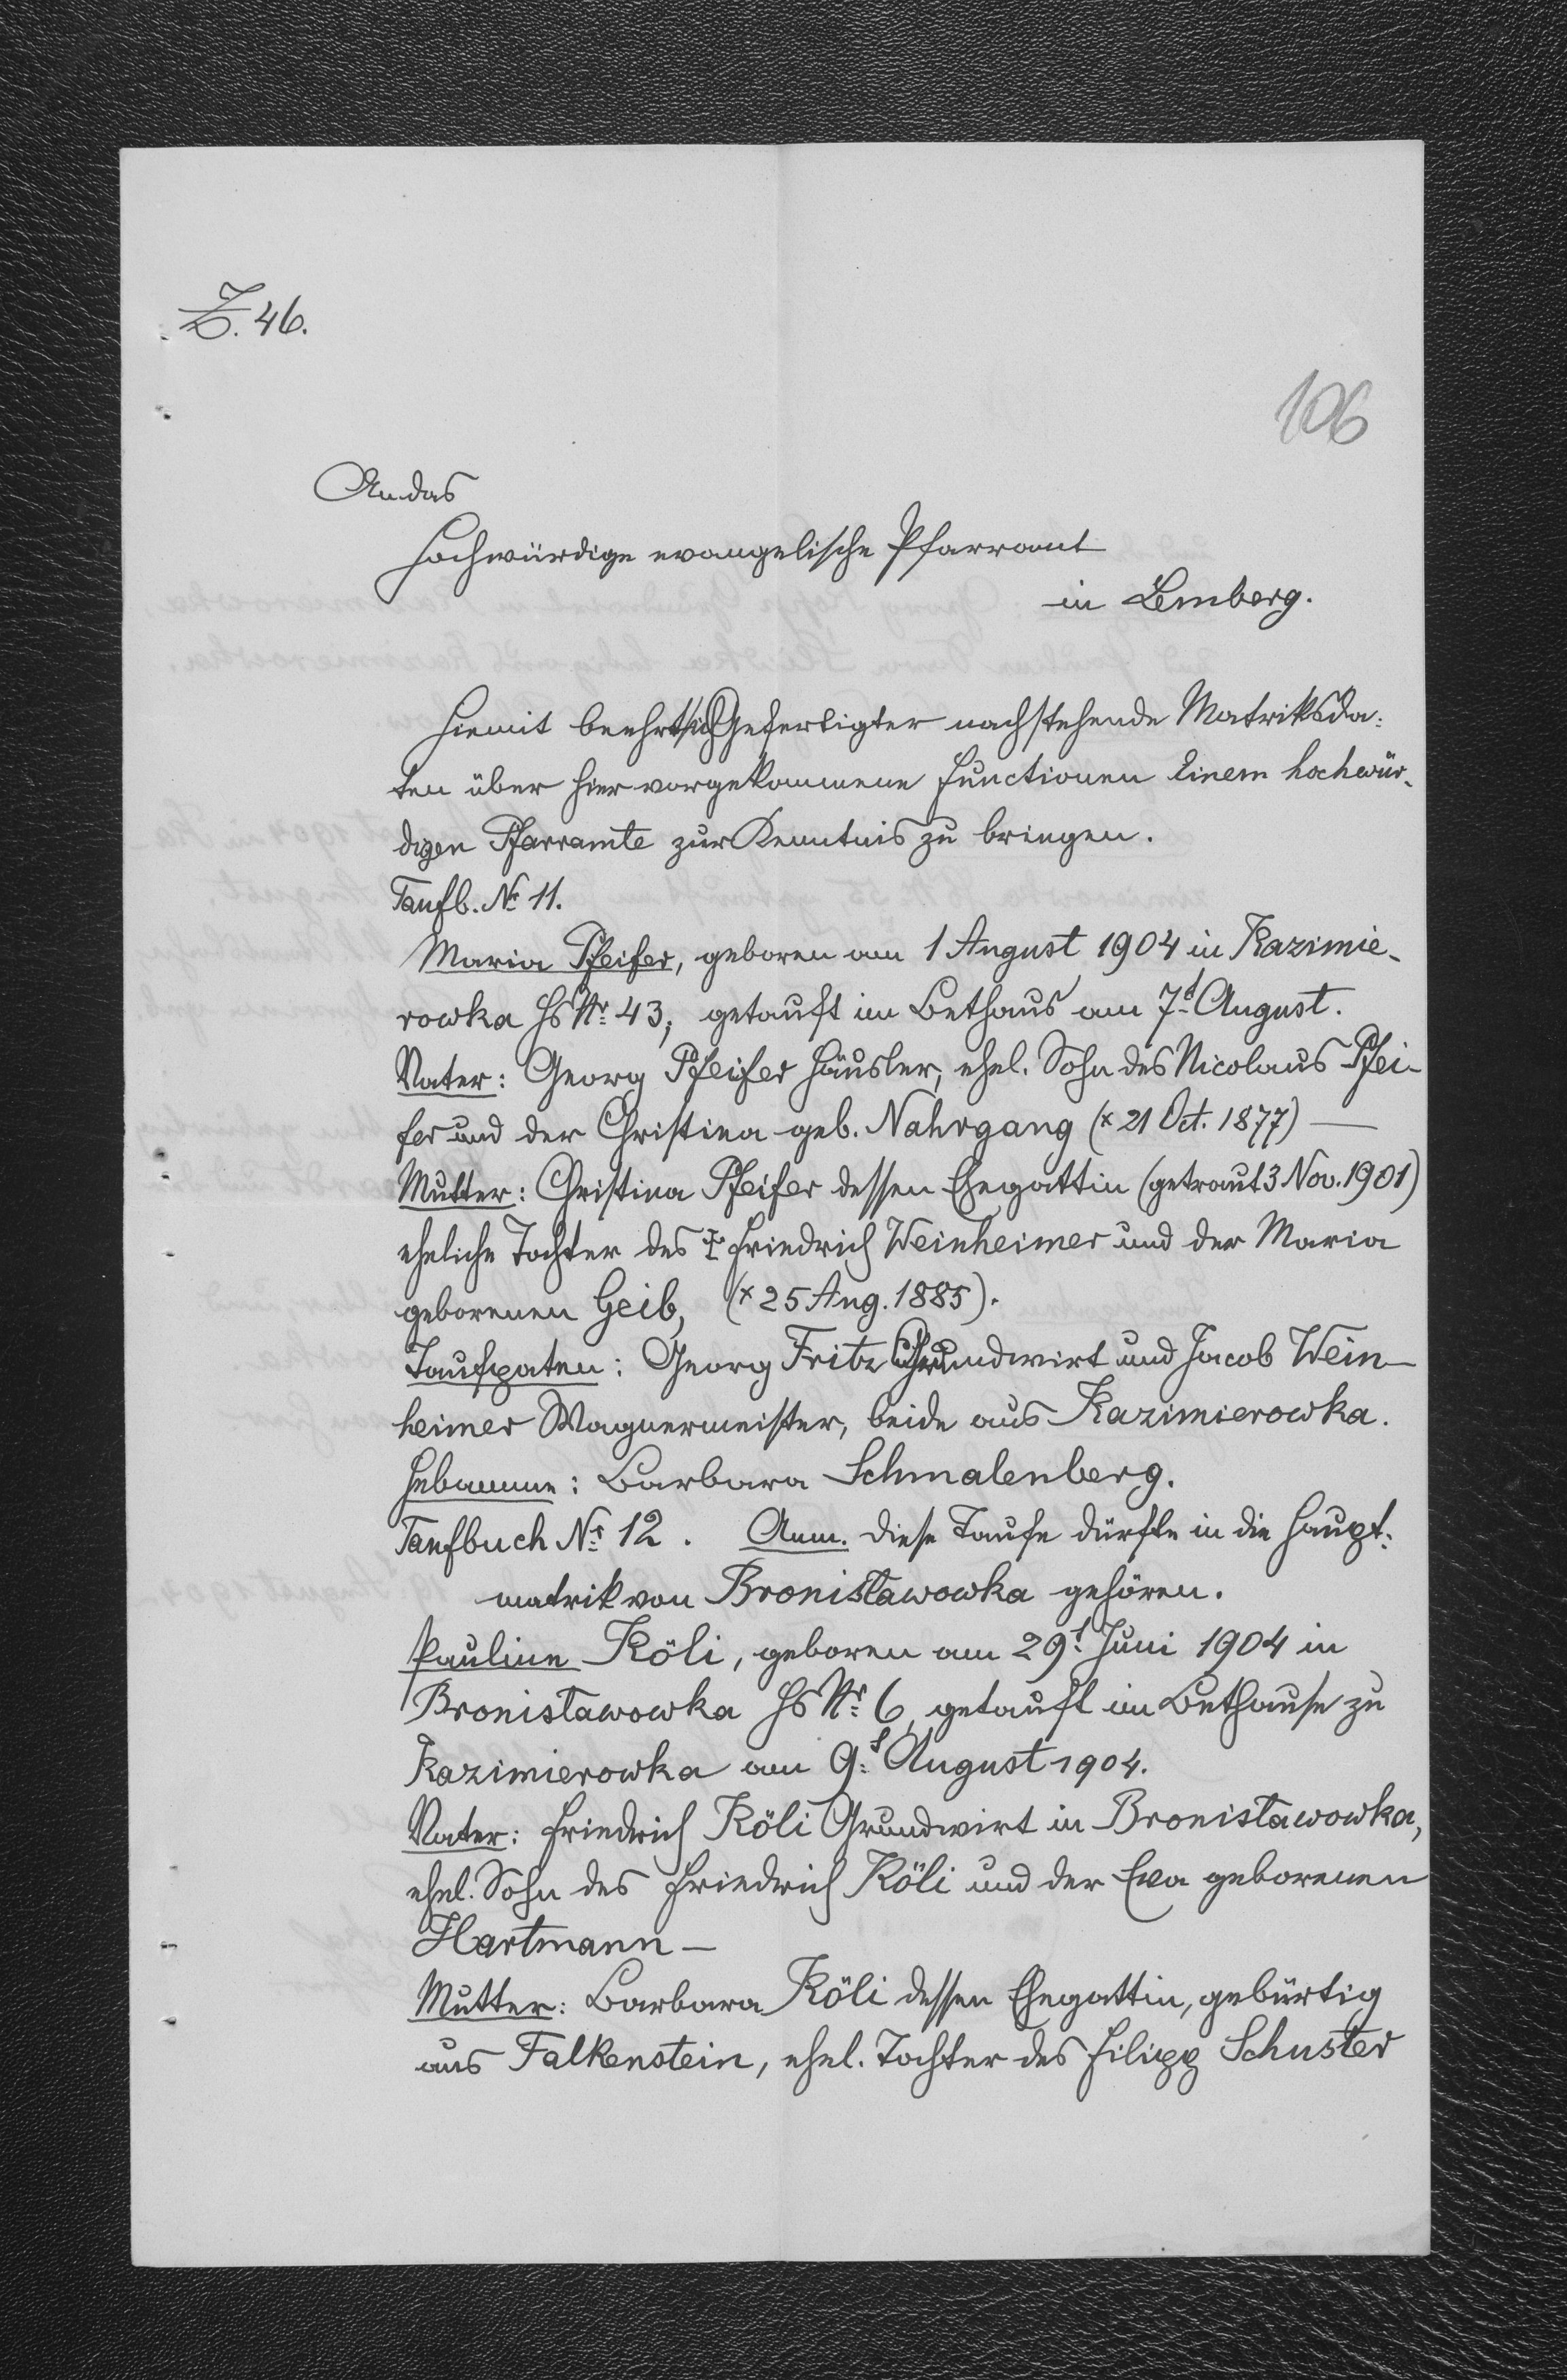 Z. 46.
106
An das
Hochwürdige evangelische Pfarramt
in Lemberg.
Hiemit beehrt sich Gefertigter nachstehende Matriksda-
ten über hier vorgekommene Functionen Einem hochwür-
digen Pfarramte zur Kenntnis zu bringen.
Taufb. No 11.
Maria Pfeifer, geboren am 1 August 1904 in Kazimie-
rowka Hs Nr. 43, getauft im Bethaus am 7t August.
Vater: Georg Pfeifer Häusler, ehel. Sohn des Nicolaus Pfei-
fer und der Christina geb. Nahrgang (* 21 Oct. 1877) —
Mutter: Christina Pfeifer dessen Ehegattin (getraut 3 Nov. 1901)
eheliche Tochter des ‡ Friedrich Weinheimer und der Maria
geborenen Geib, (* 25 Aug. 1885).
Taufpaten: Georg Fritz Grundwirt und Jacob Wein-
heimer Wagnermeister, beide aus Kazimierowka.
Hebamme: Barbara Schmalenberg.
Taufbuch Nr. 12. Anm. Diese Taufe dürfte in die Haupt-
matrik von Bronisławowka gehören.
Pauline Köli, geboren am 29t Juni 1904 in
Bronisławowka Hs Nr. 6, getauft im Bethause zu
Kazimierowka am 9t August 1904.
Vater: Friedrich Köli Grundwirt in Bronisławowka,
ehel. Sohn des Friedrich Köli und der Eva geborenen
Hartmann —
Mutter: Barbara Köli dessen Ehegattin, gebürtig
aus Falkenstein, ehel. Tochter des Filipp Schuster